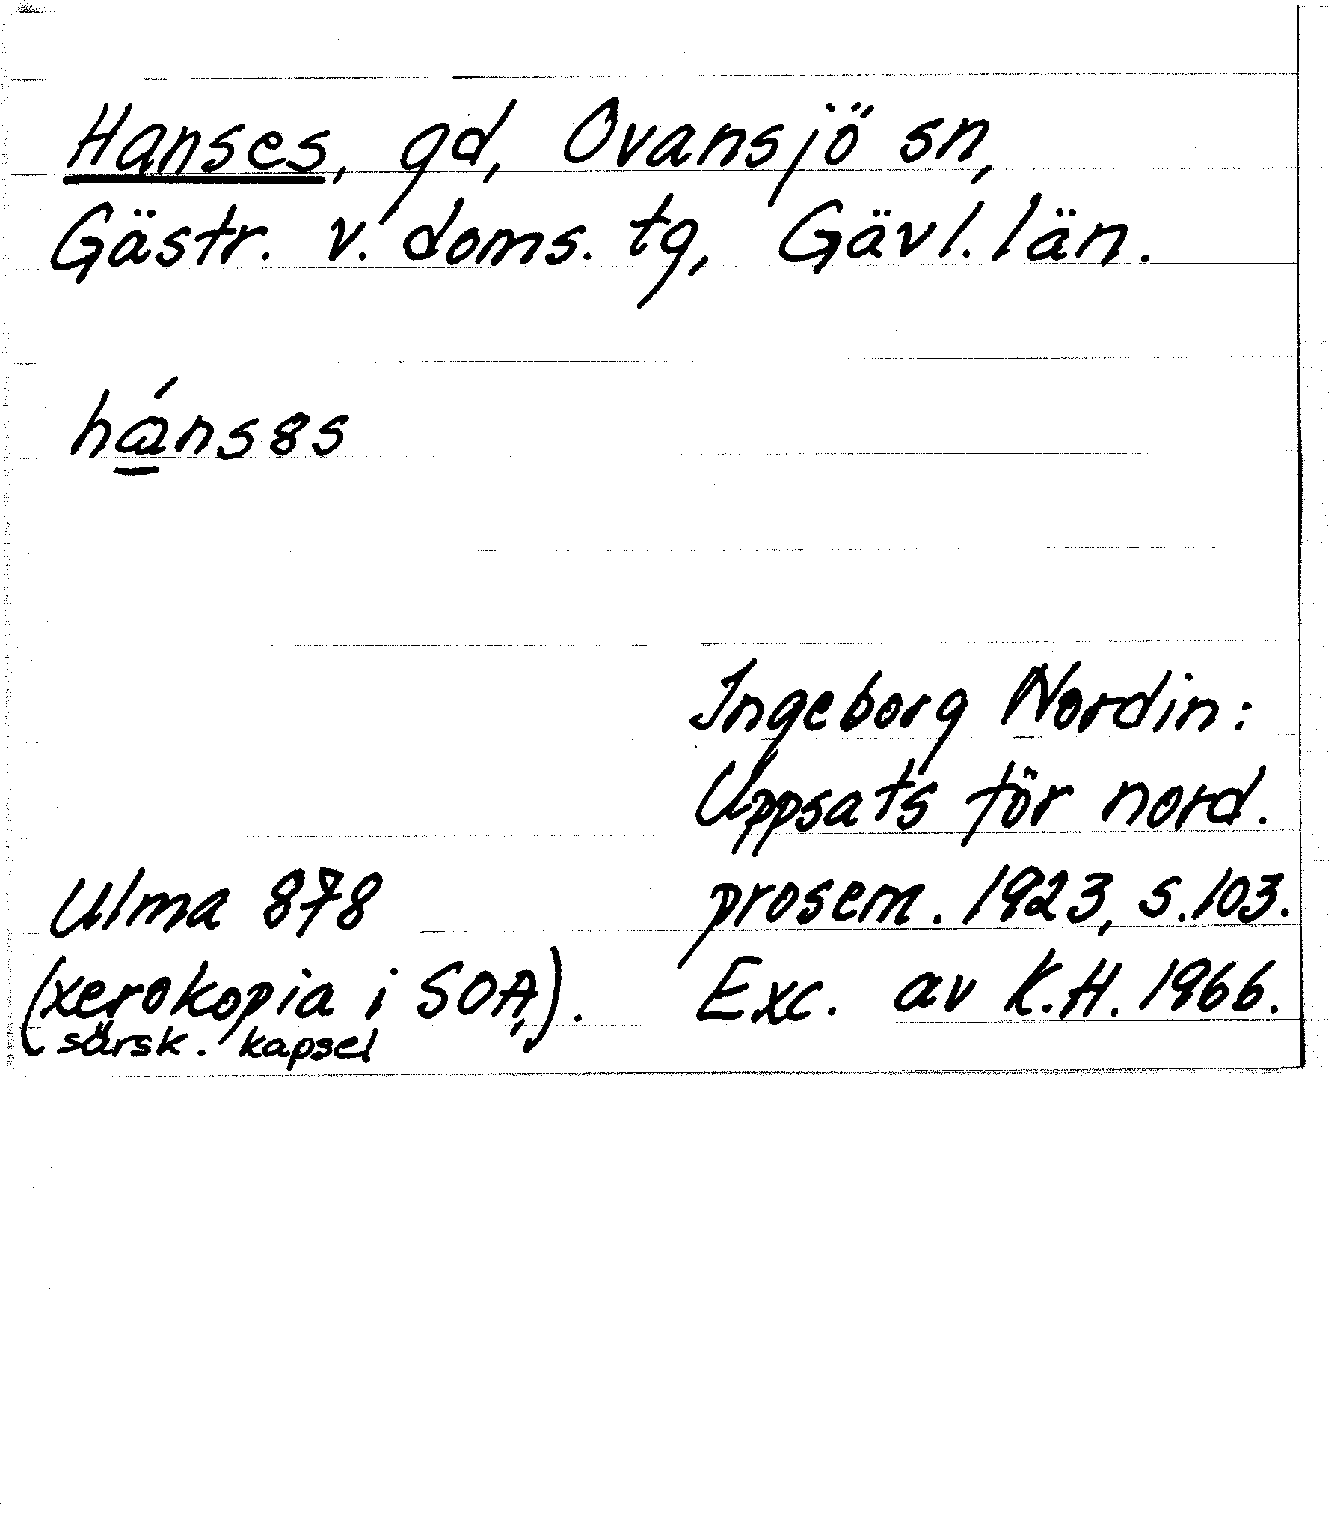 Hanses, gd, Ovansjö sn,
Gästr. v. doms. tg, Gävl. län.
hánsss
Ingeborg Nordin:
Uppsats för nord.
prosem. 1923, s. 103.
Exc. av K.H. 1966.
Ulma 878
(xerokopia i SOA,).
särsk. kapsel